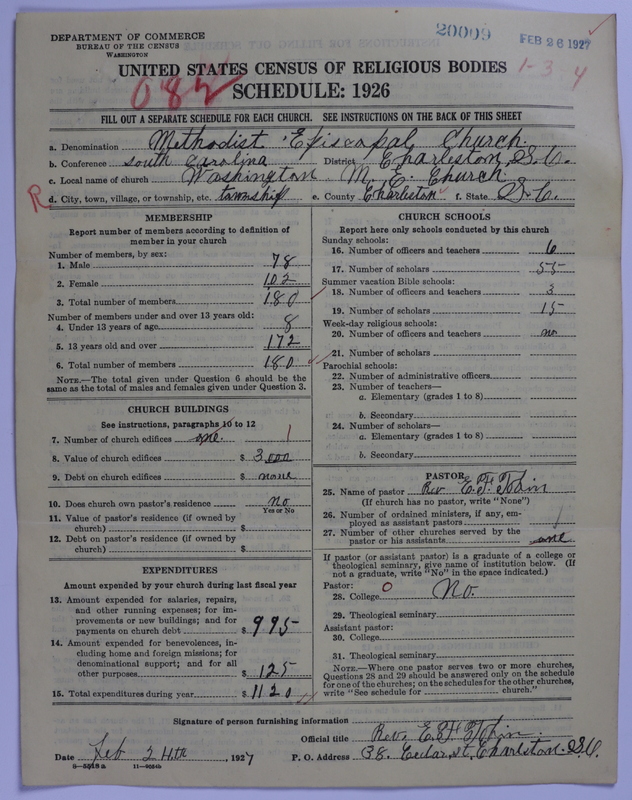 DEPARTMENT OF COMMERCE
BUREAU OF THE CENSUS
WASHINGTON
20009
FEB 26 1927
1-3-4
UNITED STATES CENSUS OF RELIGIOUS BODIES
SCHEDULE: 1926
082
FILL OUT A SEPARATE SCHEDULE FOR EACH CHURCH. SEE INSTRUCTIONS ON THE BACK OF THIS SHEET
a. Denomination Methodist Episcopal Church
b. Conference South Carolina District Charleston, S.C.
c. Local name of church Washington M. E. Church
R d. City, town, village, or township, etc. township e. County Charleston f. State S.C.
MEMBERSHIP
Report number of members according to definition of
member in your church
Number of members, by sex:
1. Male 78
2. Female 102
3. Total number of members 180
Number of members under and over 13 years old:
4. Under 13 years of age 8
5. 13 years old and over 172
6. Total number of members 180
NOTE.—The total given under Question 6 should be the
same as the total of males and females given under Question 3.
CHURCH BUILDINGS
See instructions, paragraphs 10 to 12
7. Number of church edifices one 1
8. Value of church edifices $ 3,000
9. Debt on church edifices $ none
10. Does church own pastor's residence no
Yes or No
11. Value of pastor's residence (if owned by
church) $
12. Debt on pastor's residence (if owned by
church) $
EXPENDITURES
Amount expended by your church during last fiscal year
13. Amount expended for salaries, repairs,
and other running expenses; for im-
provements or new buildings; and for
payments on church debt $ 995
14. Amount expended for benevolences, in-
cluding home and foreign missions; for
denominational support; and for all
other purposes $ 125
15. Total expenditures during year $ 1120
CHURCH SCHOOLS
Report here only schools conducted by this church
Sunday schools:
16. Number of officers and teachers 6
17. Number of scholars 55
Summer vacation Bible schools:
18. Number of officers and teachers 3
19. Number of scholars 15
Week-day religious schools:
20. Number of officers and teachers no
21. Number of scholars
Parochial schools:
22. Number of administrative officers
23. Number of teachers—
a. Elementary (grades 1 to 8)
b. Secondary
24. Number of scholars—
a. Elementary (grades 1 to 8)
b. Secondary
PASTOR
25. Name of pastor Rev. E. F. Tobin
(If church has no pastor, write "None")
26. Number of ordained ministers, if any, em-
ployed as assistant pastors 1
27. Number of other churches served by the
pastor or his assistants one
If pastor (or assistant pastor) is a graduate of a college or
theological seminary, give name of institution below. (If
not a graduate, write "No" in the space indicated.)
Pastor:
28. College 0 No.
29. Theological seminary
Assistant pastor:
30. College
31. Theological seminary
NOTE.—Where one pastor serves two or more churches,
Questions 28 and 29 should be answered only on the schedule
for one of the churches; on the schedules for the other churches,
write "See schedule for church."
Signature of person furnishing information
Official title Rev. E. F. Tobin.
Date Feb 24th, 1927 P. O. Address 38. Cedar, st, Charlston. S.C.